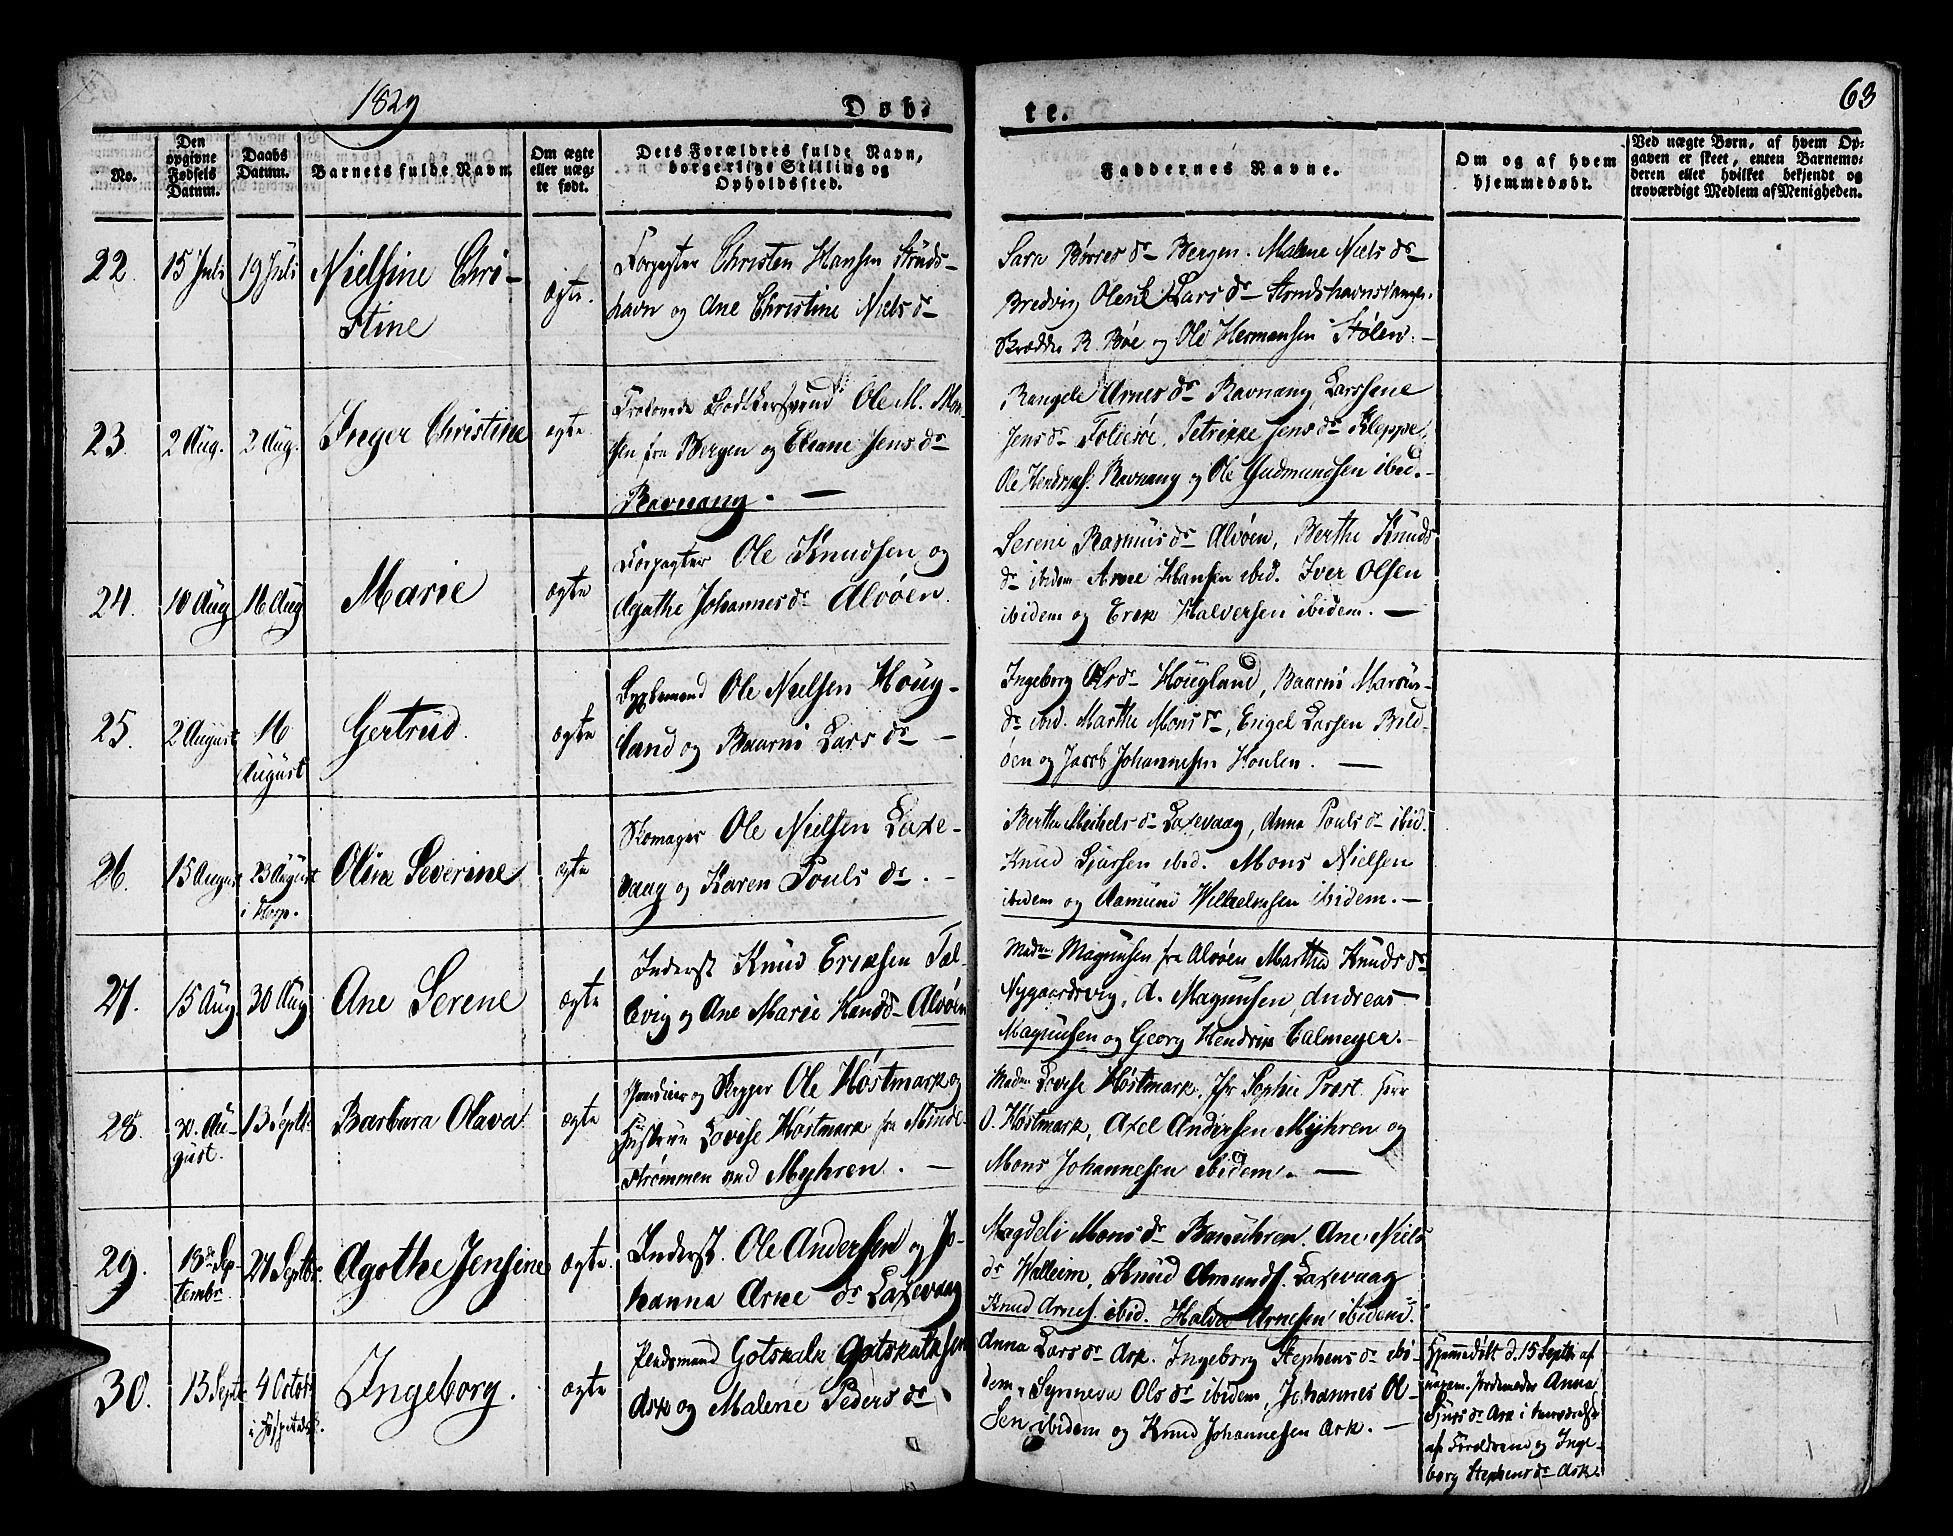 1829
Døb-
te.
63
No.
Den opgivne Fødsels Datum.
Daabs Datum.
Barnets fulde Navn
Om ægte eller uæg- te født.
Dets Forældres fulde Navn, borgerlige Stilling og Opholdssted.
Faddernes Navne.
Om og af hvem hjemmedøbt.
Ved uægte Børn, af hvem Op- gaven er skeet, enten Barnemo- deren eller hvilket bekjendt og troværdigt Medlem af Menigheden.
22. 15 Juli 19 Juli Nielsine Chri-
stine
ægte.
Forpagter Christen Hansen Struds-
havn og Ane Christine Niels dr
Sara Børres dr Bergen. Malene Niels dr
Bredvig Lars dr
Skrædder R. Bøe og Ole Hermansen Stølen. -
23. 2 Aug. 2 Aug. Inger Christine ægte
Ole M. Mon-
sen fra Bergen og Eliane Jens dr
Ravnang. -
Rangele Arnes dr Ravnang, Larssene
Jens dr Foldesøe, Petrikke Jens dr Kleppe,
Ole Hendrichs. Ravnang og Ole Gudmundsen ibid. -
24. 10 Aug 16 Aug Marie ægte
Forpagter Ole Knudsen og
Agathe Johannes dr Alvøen.
Serene Rasmus dr Alvøen, Berthe Knuds
dr ibidem Arne Hansen ibid. Iver Olsen
ibidem og Erek Halversen ibidem. -
25. 2 August 16
August
Gertrud. ægte
Ole Nielsen Houg-
land og Baarni Lars dr -
Ingeborg Ols dr Hougland, Baarni Marcus-
dr ibid. Marthe Mons dr, Engel Larsen Bild-
øen og Jacob Johannesen Houlen. -
26. 15 August 23 August
i Korp.
Oline Severine ægte
Skomager Ole Nielsen Laxe-
vaag og Karen Pouls dr. -
Berthe Michels dr Laxevaag, Anna Pouls dr ibid.
Knud Sjursen ibid. Mons Nielsen
ibidem og Aamund Wilhelmsen ibidem. -
27. 15 Aug 30 Aug Ane Serene ægte
Inderst Knud Ericksen Tæl-
evig og Ane Marie Knudsd- Alvøen
Madm Magnusen fra Alvøen Martha Knuds dr
Nygaardsvig, A. Magnusen, Andreas
Magnusen og Georg Hendrik Calmeyer. -
28. 30. Au-
gust.
13 Septb. Barbara Olava ægte
Ole Høstmark og
Hustrue Lovise Høstmark fra Minde-
strømmen ved Myhren. -
Madm Lovise Høstmark. Jfr Sophie Prost. Herr
O. Høstmark, Axel Andersen Myhren og
Mons Johannesen ibidem. -
29. 13de Sep-
tembr
27 Septbr. Agothe Jensine ægte.
Inderst. Ole Andersen og Jo-
hanna Arne dr Laxevaag
Magdeli Mons dr Ane Niels
dr Walleim, Knud Amunds. Laxevaag
Knud Arnes. ibid. Haldor Arnesen ibidem.
30. 13 Septr 4 Octobr
i Hospitalet.
Ingeborg. ægte
Gotskalk Gotskalksen
Ask og Malene Peders dr
Anna Lars dr Ask. Ingeborg Stephens dr ibi-
dem, Synneva Ols dr ibidem, Johannes Ol-
sen ibidem og Knud Johannessen Ask. -
Hjemmedøbt d. 15 Septbr af
Jordemoder Anna
Sjurs dr Ask i
af Forældrene og Inge-
borg Stephens dr Ask.